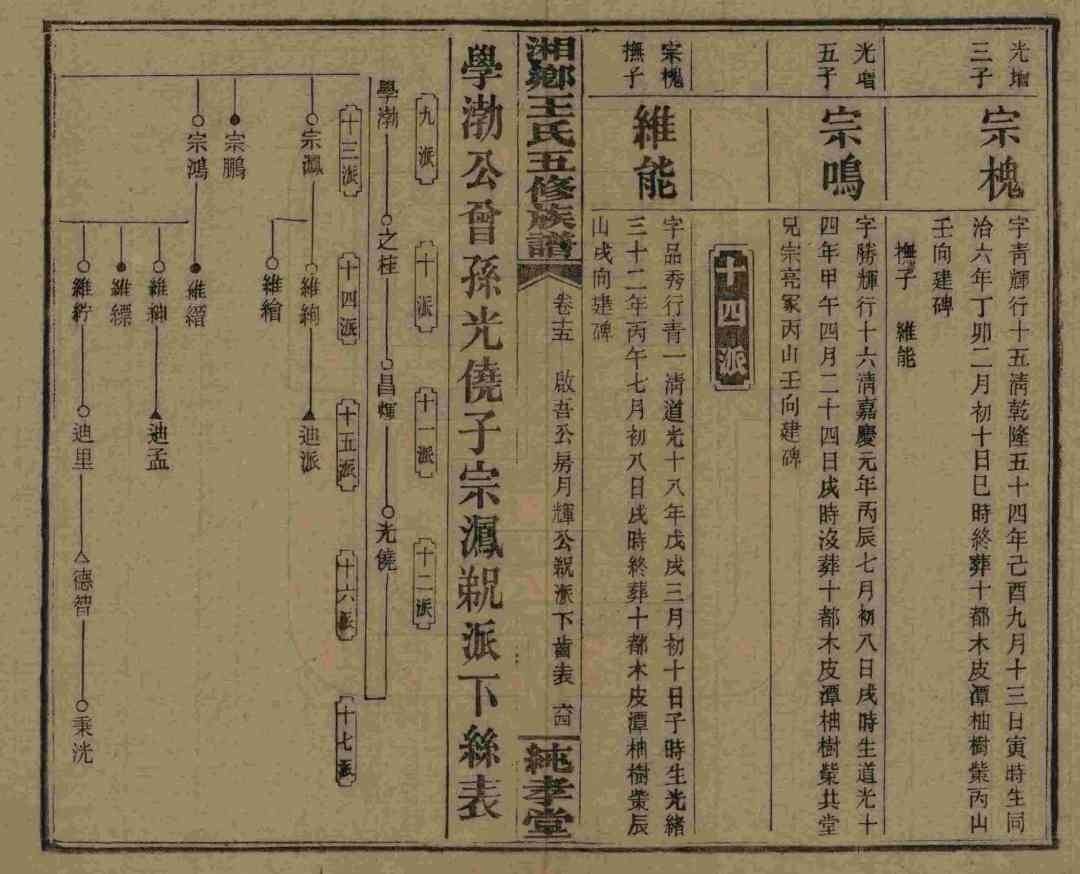 光增三子
宗槐
字青輝行十五淸乾隆五十四年己酉九月十三日寅時生同
治六年丁卯二月初十日巳時終葬十都木皮潭柚樹塋丙山
壬向建碑
撫子 維能
光增五子
宗鳴
字勝輝行十六淸嘉慶元年丙辰七月初八日戌時生道光十
四年甲午四月二十四日戌時沒葬十都木皮潭柚樹塋共堂
兄宗亮冢丙山壬向建碑
十四派
宗槐撫子
維能
字品秀行青一淸道光十八年戊戌三月初十日子時生光緒
三十二年丙午七月初八日戌時終葬十都木皮潭柚樹塋辰
山戌向建碑
湘鄉王氏五修族譜
卷十五 啟吾公房月輝公派下齒表
純孝堂
學渤公曾孫光僥子宗渢派下絲表
九派
十派
十一派
十二派
學渤
之桂
昌輝
光僥
十三派
十四派
十五派
十六派
十七派
宗渢
維絢
迪派
維繪
宗鵬
宗鴻
維縉
維紳
迪孟
維縹
維紵
迪里
德智
秉洸